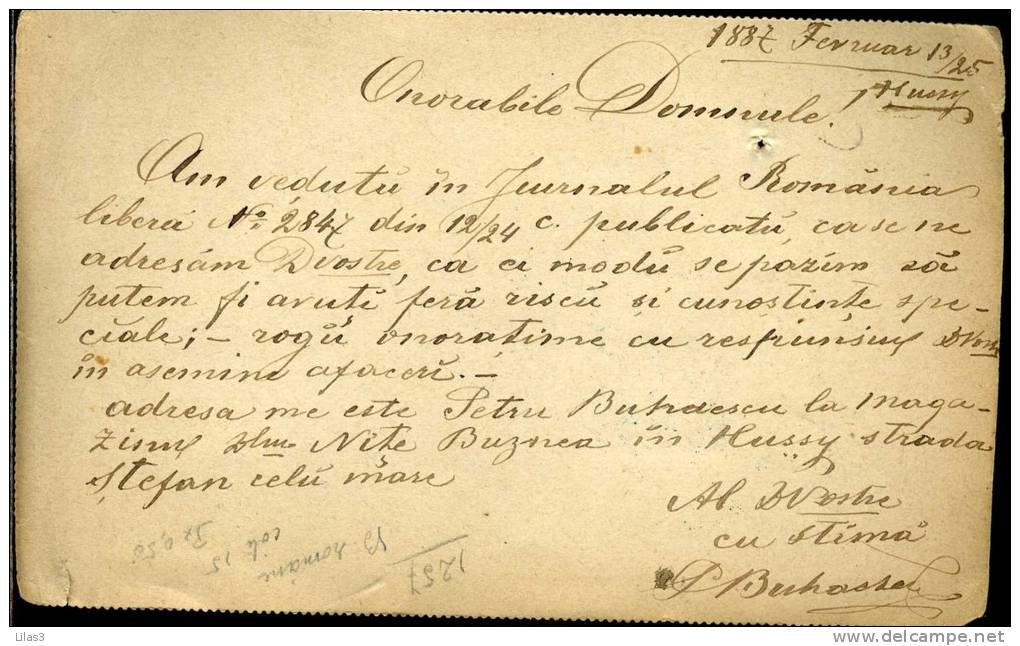 1887 Fevruar 13/25
Hussy
Onorabile Domnule!
Am vedutŭ în Jurnalul România
liberă No. 2847 din 12/24 c. publicatŭ, ca se ne
adresăm DVostre, ca ci modŭ se pazim să
putem fi avuti feră riscŭ si cunostințe spe-
ciale; – rogŭ onoratime cu respunsul DVostre
în asemini afaceri. –
adresa me este Petru Buhaescu la maga-
zinul Dlui Nite Buznea în Hussy strada
Ștefan celŭ mare
Al DVostre
cu stimă
P Buhaescu
1257
romane
15
Lilas3
http://www.delcampe.net